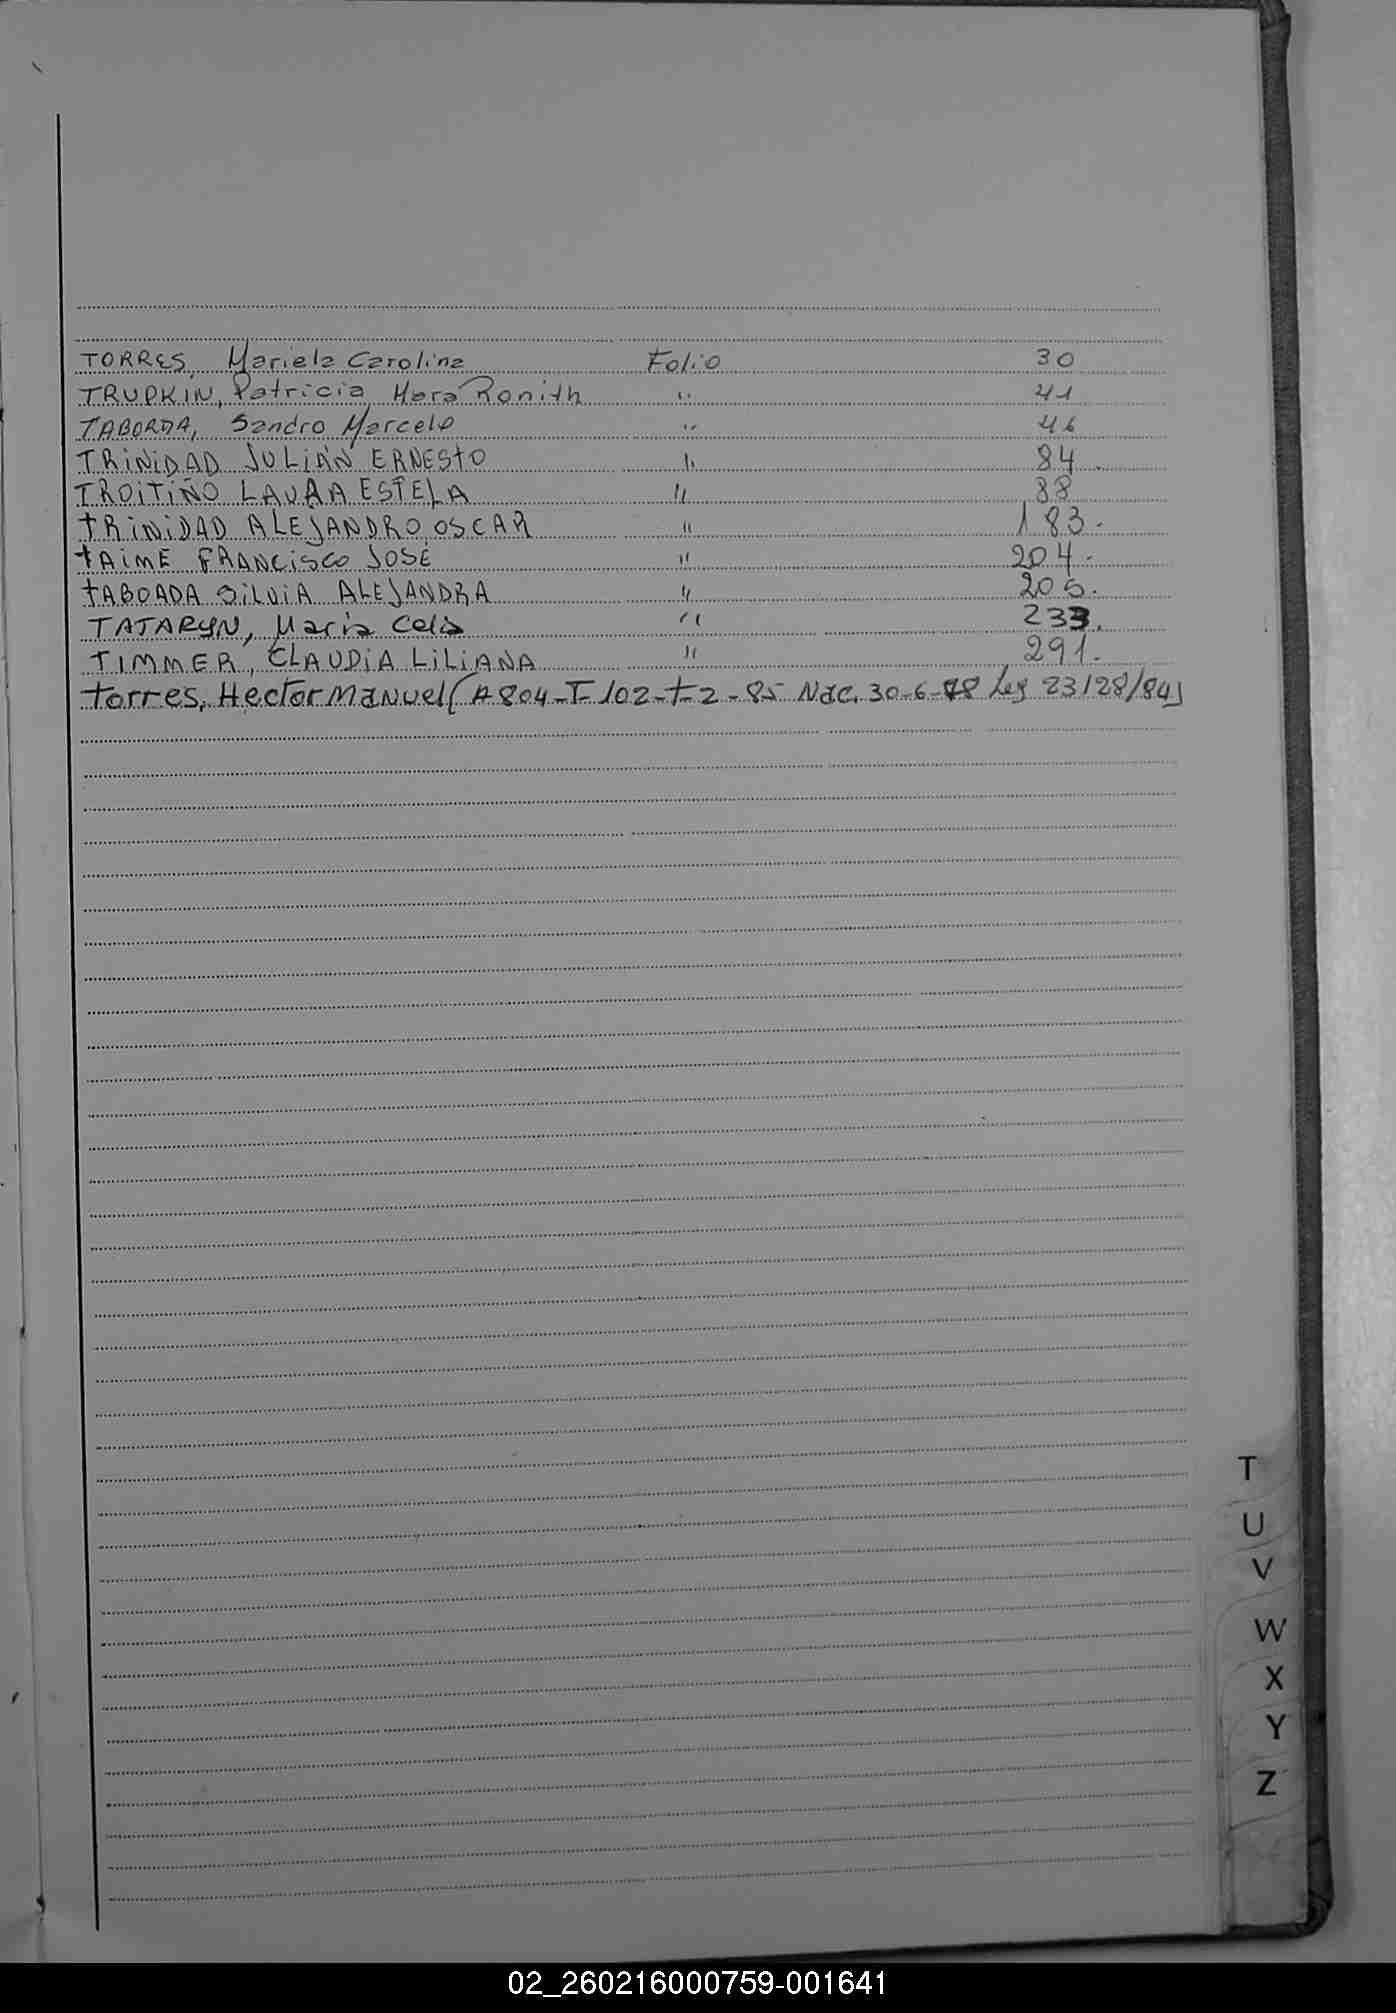 TORRES, Mariela Carolina Folio 30
TRUPKIN, Patricia Mara Ronith " 41
TABORDA, Sandro Marcelo " 46
TRiNiDAD JULIÁN ERNESTO " 84
TROiTiÑO LAURA ESTELA " 88
tRiNiDAD ALEJANDRO OSCAR " 183.
tAiME FRANCiSCO JOSÉ " 204.
tABOADA SiLViA ALEJANDRA " 205.
TATARYN, Maria Celia " 233.
TIMMER, CLAUDiA LiLiANA " 291.
torres, Hector Manuel (A 804-T-102-t-2-85 Nac. 30-6-78 Leg 23128/84)
T
U
V
W
X
Y
Z
02_260216000759-001641